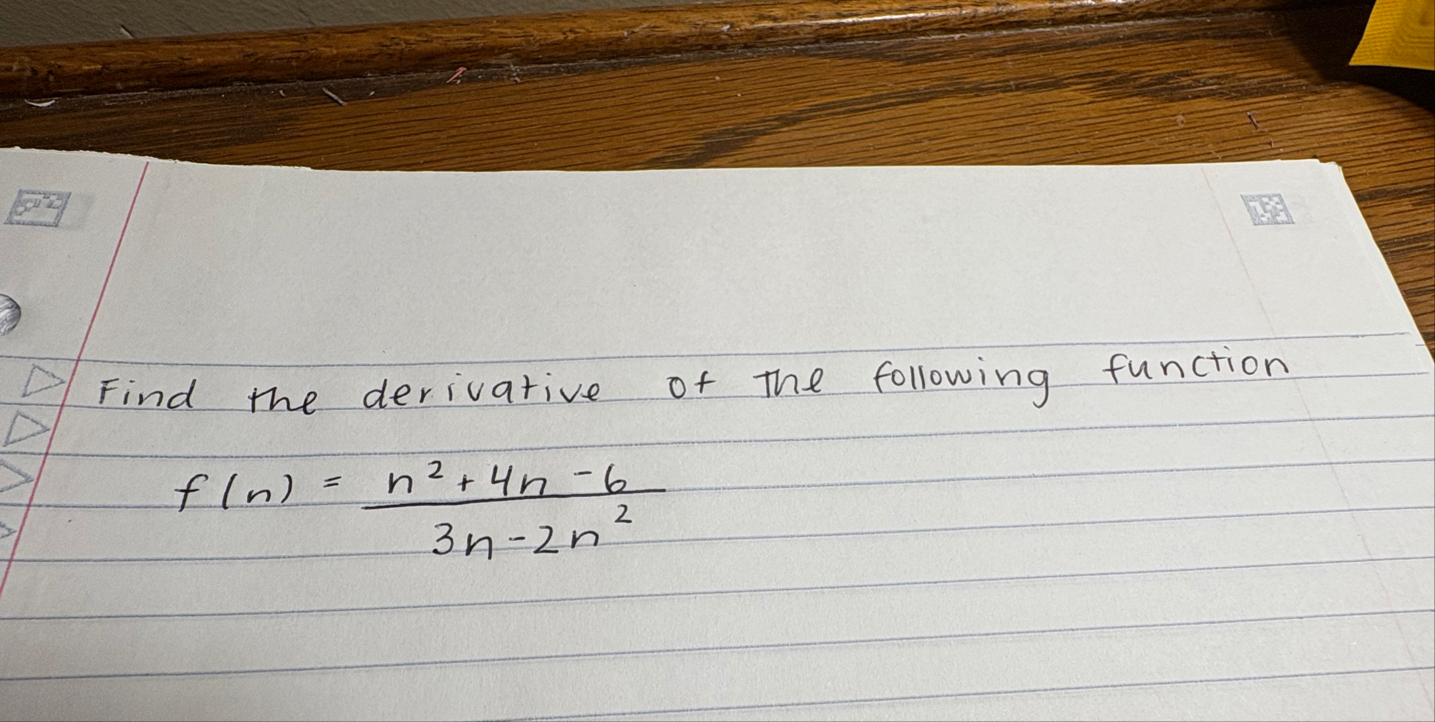 Find the derivative of the following function
f(n) = n² + 4n - 6
3n - 2n²